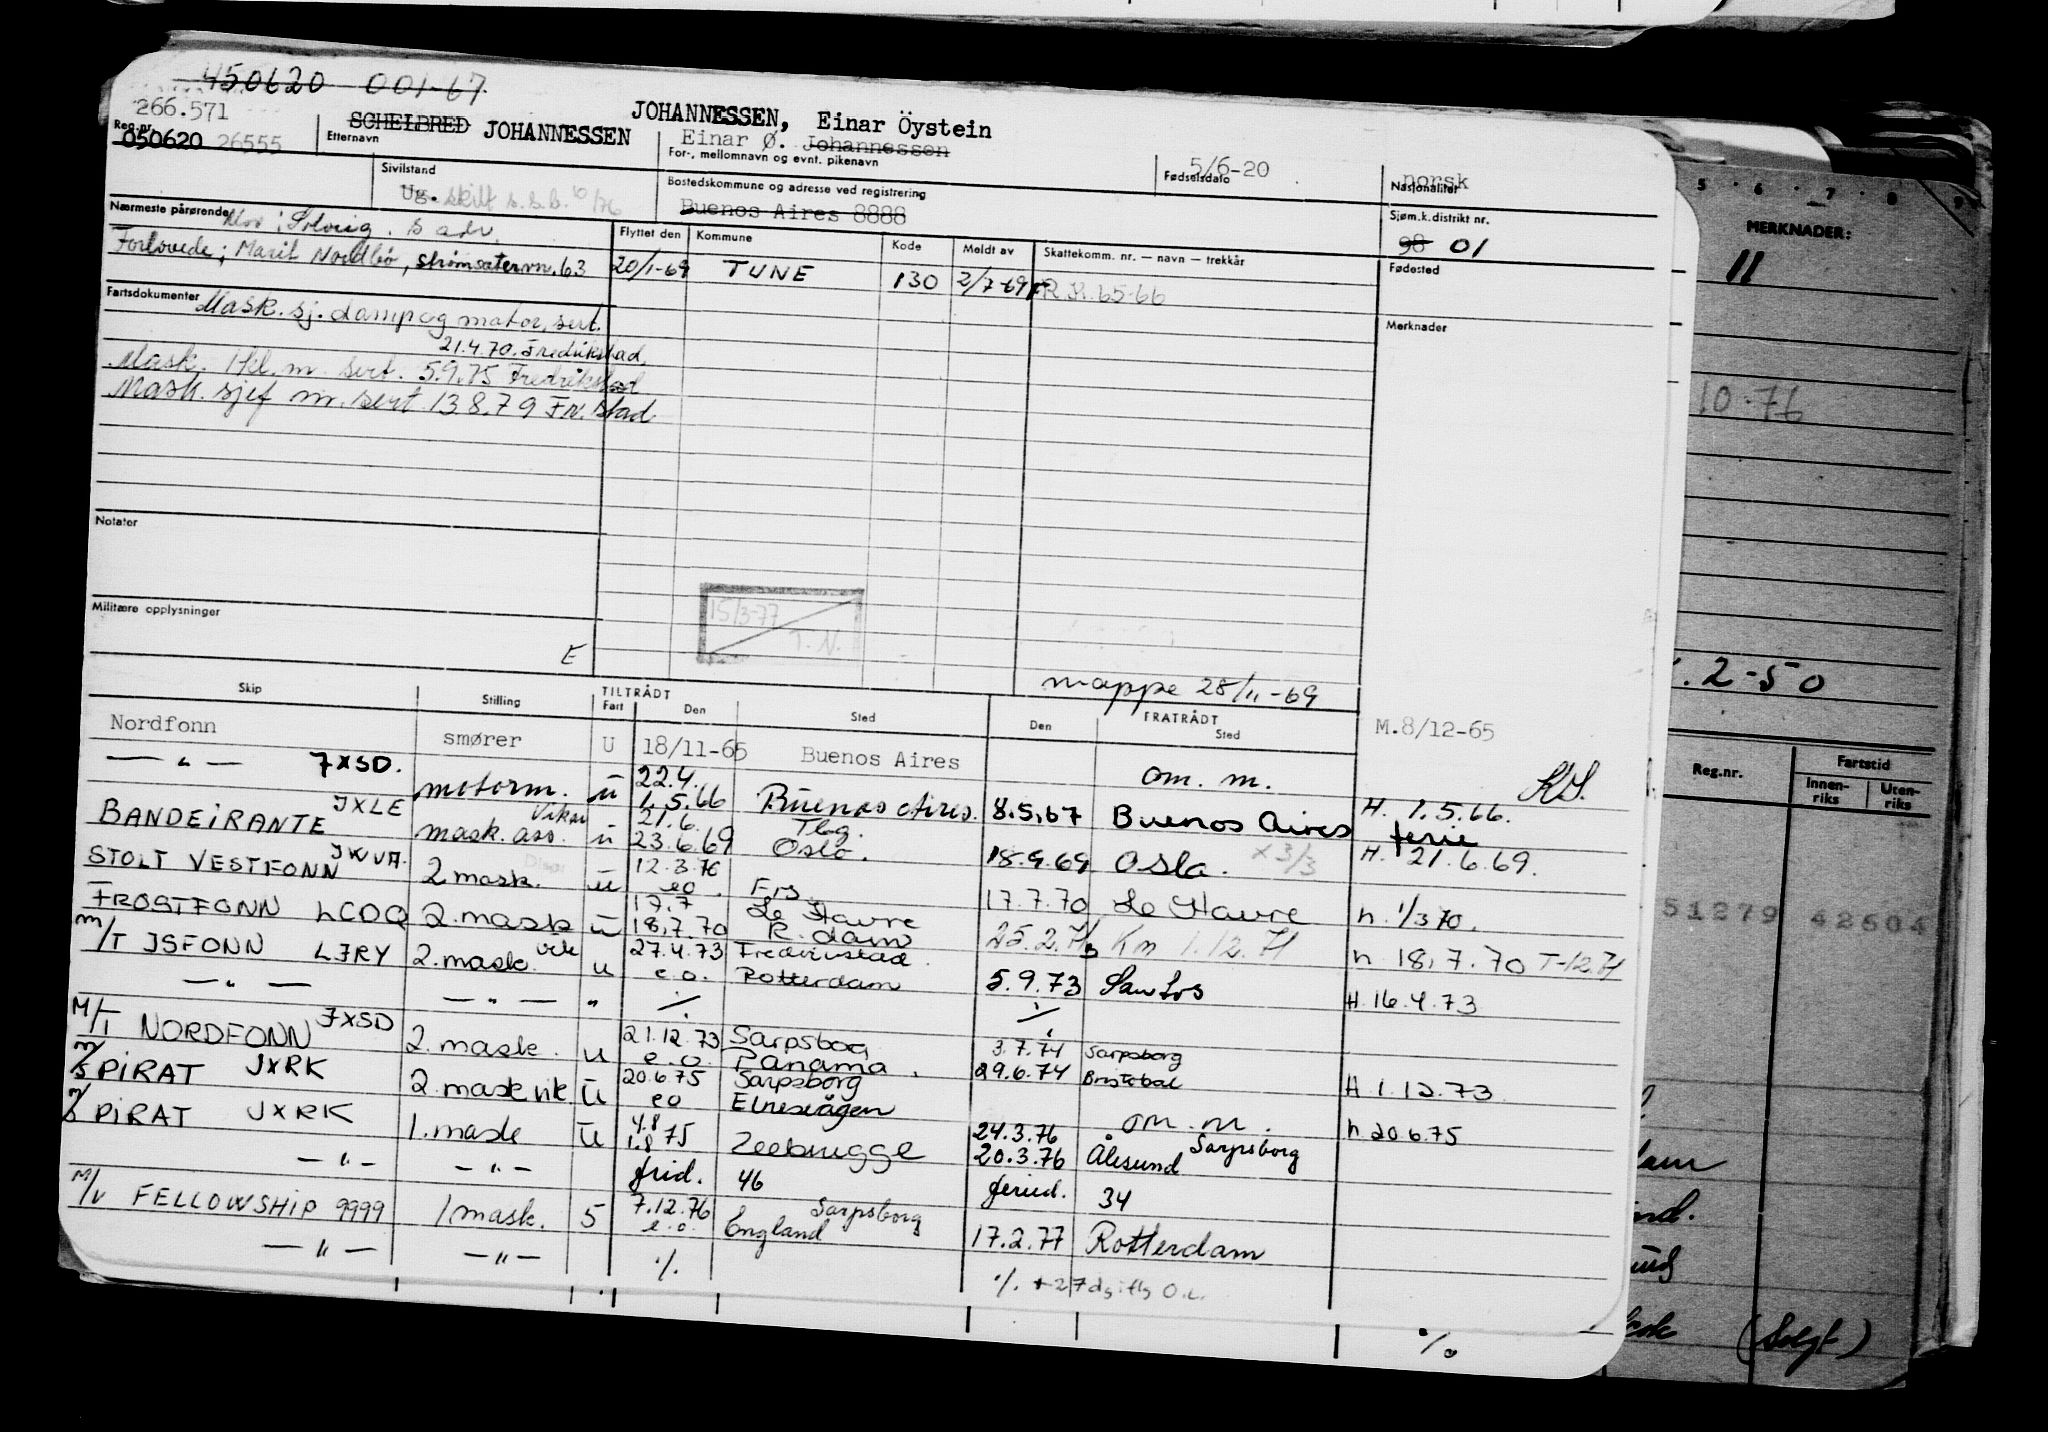 450620 001-67
266.571
Reg.nr. 050620 26555
Etternavn SCHELBRED JOHANNESSEN
JOHANNESSEN, Einar Öystein
Einar Ø. Johannessen
For-, mellomnavn og evnt. pikenavn
5/6-20
Fødselsdato
norsk
Nasjonalitet
Sivilstand
Ug. skilt s.s.b. 10/76
Bostedskommune og adresse ved registrering
Buenos Aires 8888
Sjøm.k.distrikt nr.
98 01
Nærmeste pårørende
Mor: Solveig. s adr.
Forlovede; Marit Nordbö, Strömsätervn. 63
Flyttet den Kommune Kode Meldt av Skattekomm. nr. — navn — trekkår
20/1-69 TUNE 130 2/7-69 R.K. 65-66
Fødested
Fartsdokumenter
Mask. sj. damp og motor, sert.
21.4.70. Fredrikstad
Mask. 1 kl. m. sert. 5.9.75 Fredrikstad
Mask. sjef m. sert 13 8.79 Fr. stad
Merknader
Notater
Militære opplysninger
E
15/3-77
T.N.
mappe 25/11-69
Skip Stilling TILTRÅDT Fart Den Sted Den FRATRÅDT Sted
Nordfonn smører U 18/11-65 Buenos Aires M.8/12-65
— " — JXSD. motorm. u 22.4. 1.5.66 Buenos Aires. 8.5.67 om. m. Buenos Aires H. 1.5.66. ferie
BANDEIRANTE JXLE mask. ass. Vikar u 21.6. 23.6.69 Tbg. Oslo. 18.9.69 Oslo. x 3/3 H. 21.6.69.
STOLT VESTFONN JWVA. 2 mask. u 12.3.70 eo. 17.7.70 Le Havre h 1/3 70.
FROSTFONN LCDQ 2. mask u 17.7 18.7.70 Le Havre R.dam 25.2.71 Km 1.12.71 h 18.7.70 T-12.71
M/T ISFONN LJRY 2. mask. vik u 27.4.73 e.o. Fredrikstad Rotterdam 5.9.73 Santos H. 16.4.73
— " — — " — " ./. ./.
M/T NORDFONN JXSD 2. mask. u 21.12.73 e.o. Sarpsborg Panama. 3.7.74 Sarpsborg 29.6.74 H 1.12.73
M/S PIRAT JXRK 2. mask vik U 20.6.75 eo Sarpsborg Elnesvågen om. m. h 20.6.75
M/S PIRAT JXRK 1. mask U 4.8 1.8 75 Zeebrugge 24.3.76 20.3.76 Sarpsborg Ålesund
— " — — " — frid. 46 feried. 34
M/V FELLOWSHIP 9999 1 mask. 5 7.12.76 e.o. Sarpsborg England 17.2.77 Rotterdam
— " — — " — ./. ./.
./.
MERKNADER:
5 6 7 8 9
11
10.76
2-50
Reg.nr. Fartstid Innenriks Utenriks
51279 42604
(Solgt)